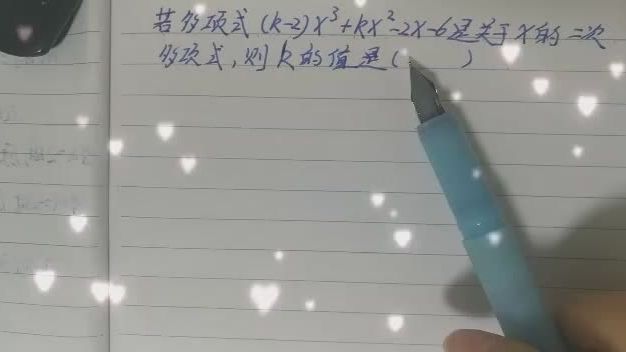 若多项式(k-2)x³+kx²-2x-6是关于x的二次
多项式,则k的值是( )